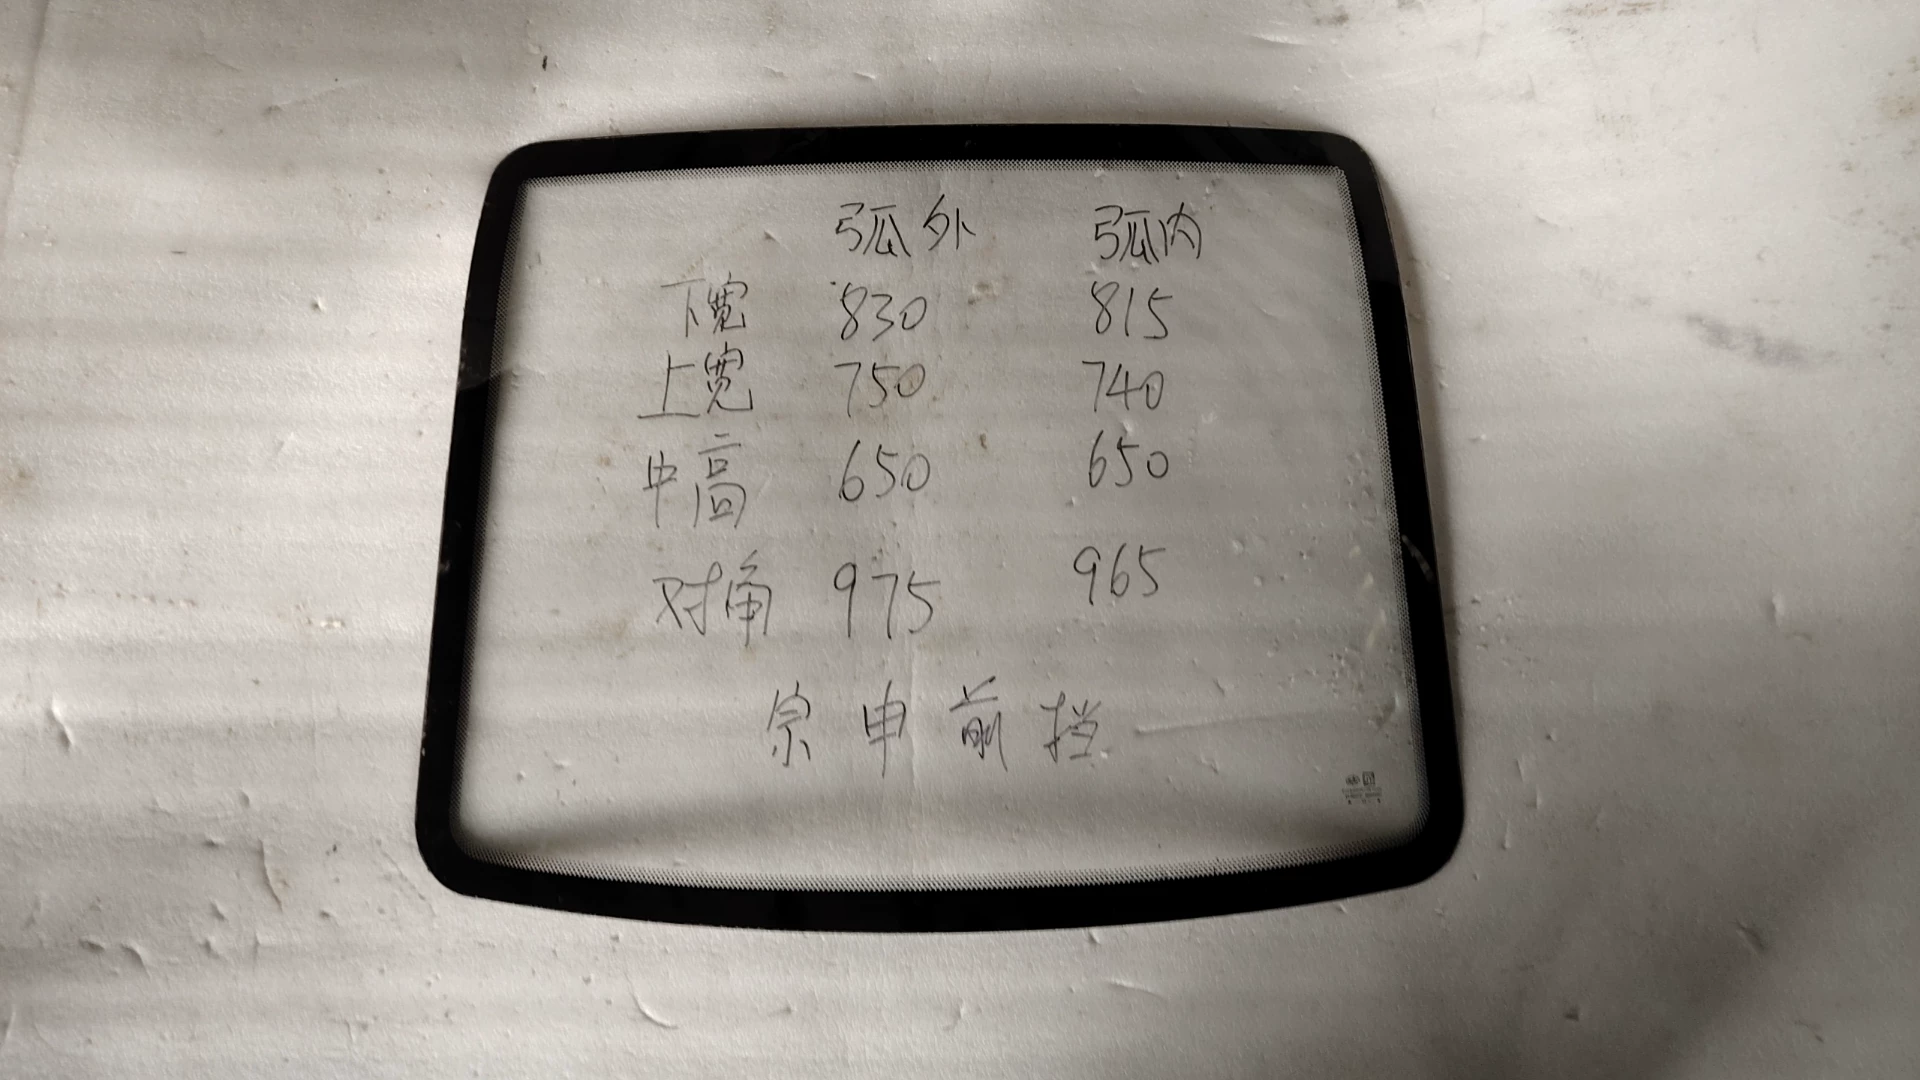 弧外 弧内
下宽 830 815
上宽 750 740
中高 650 650
对角 975 965
宗申前挡